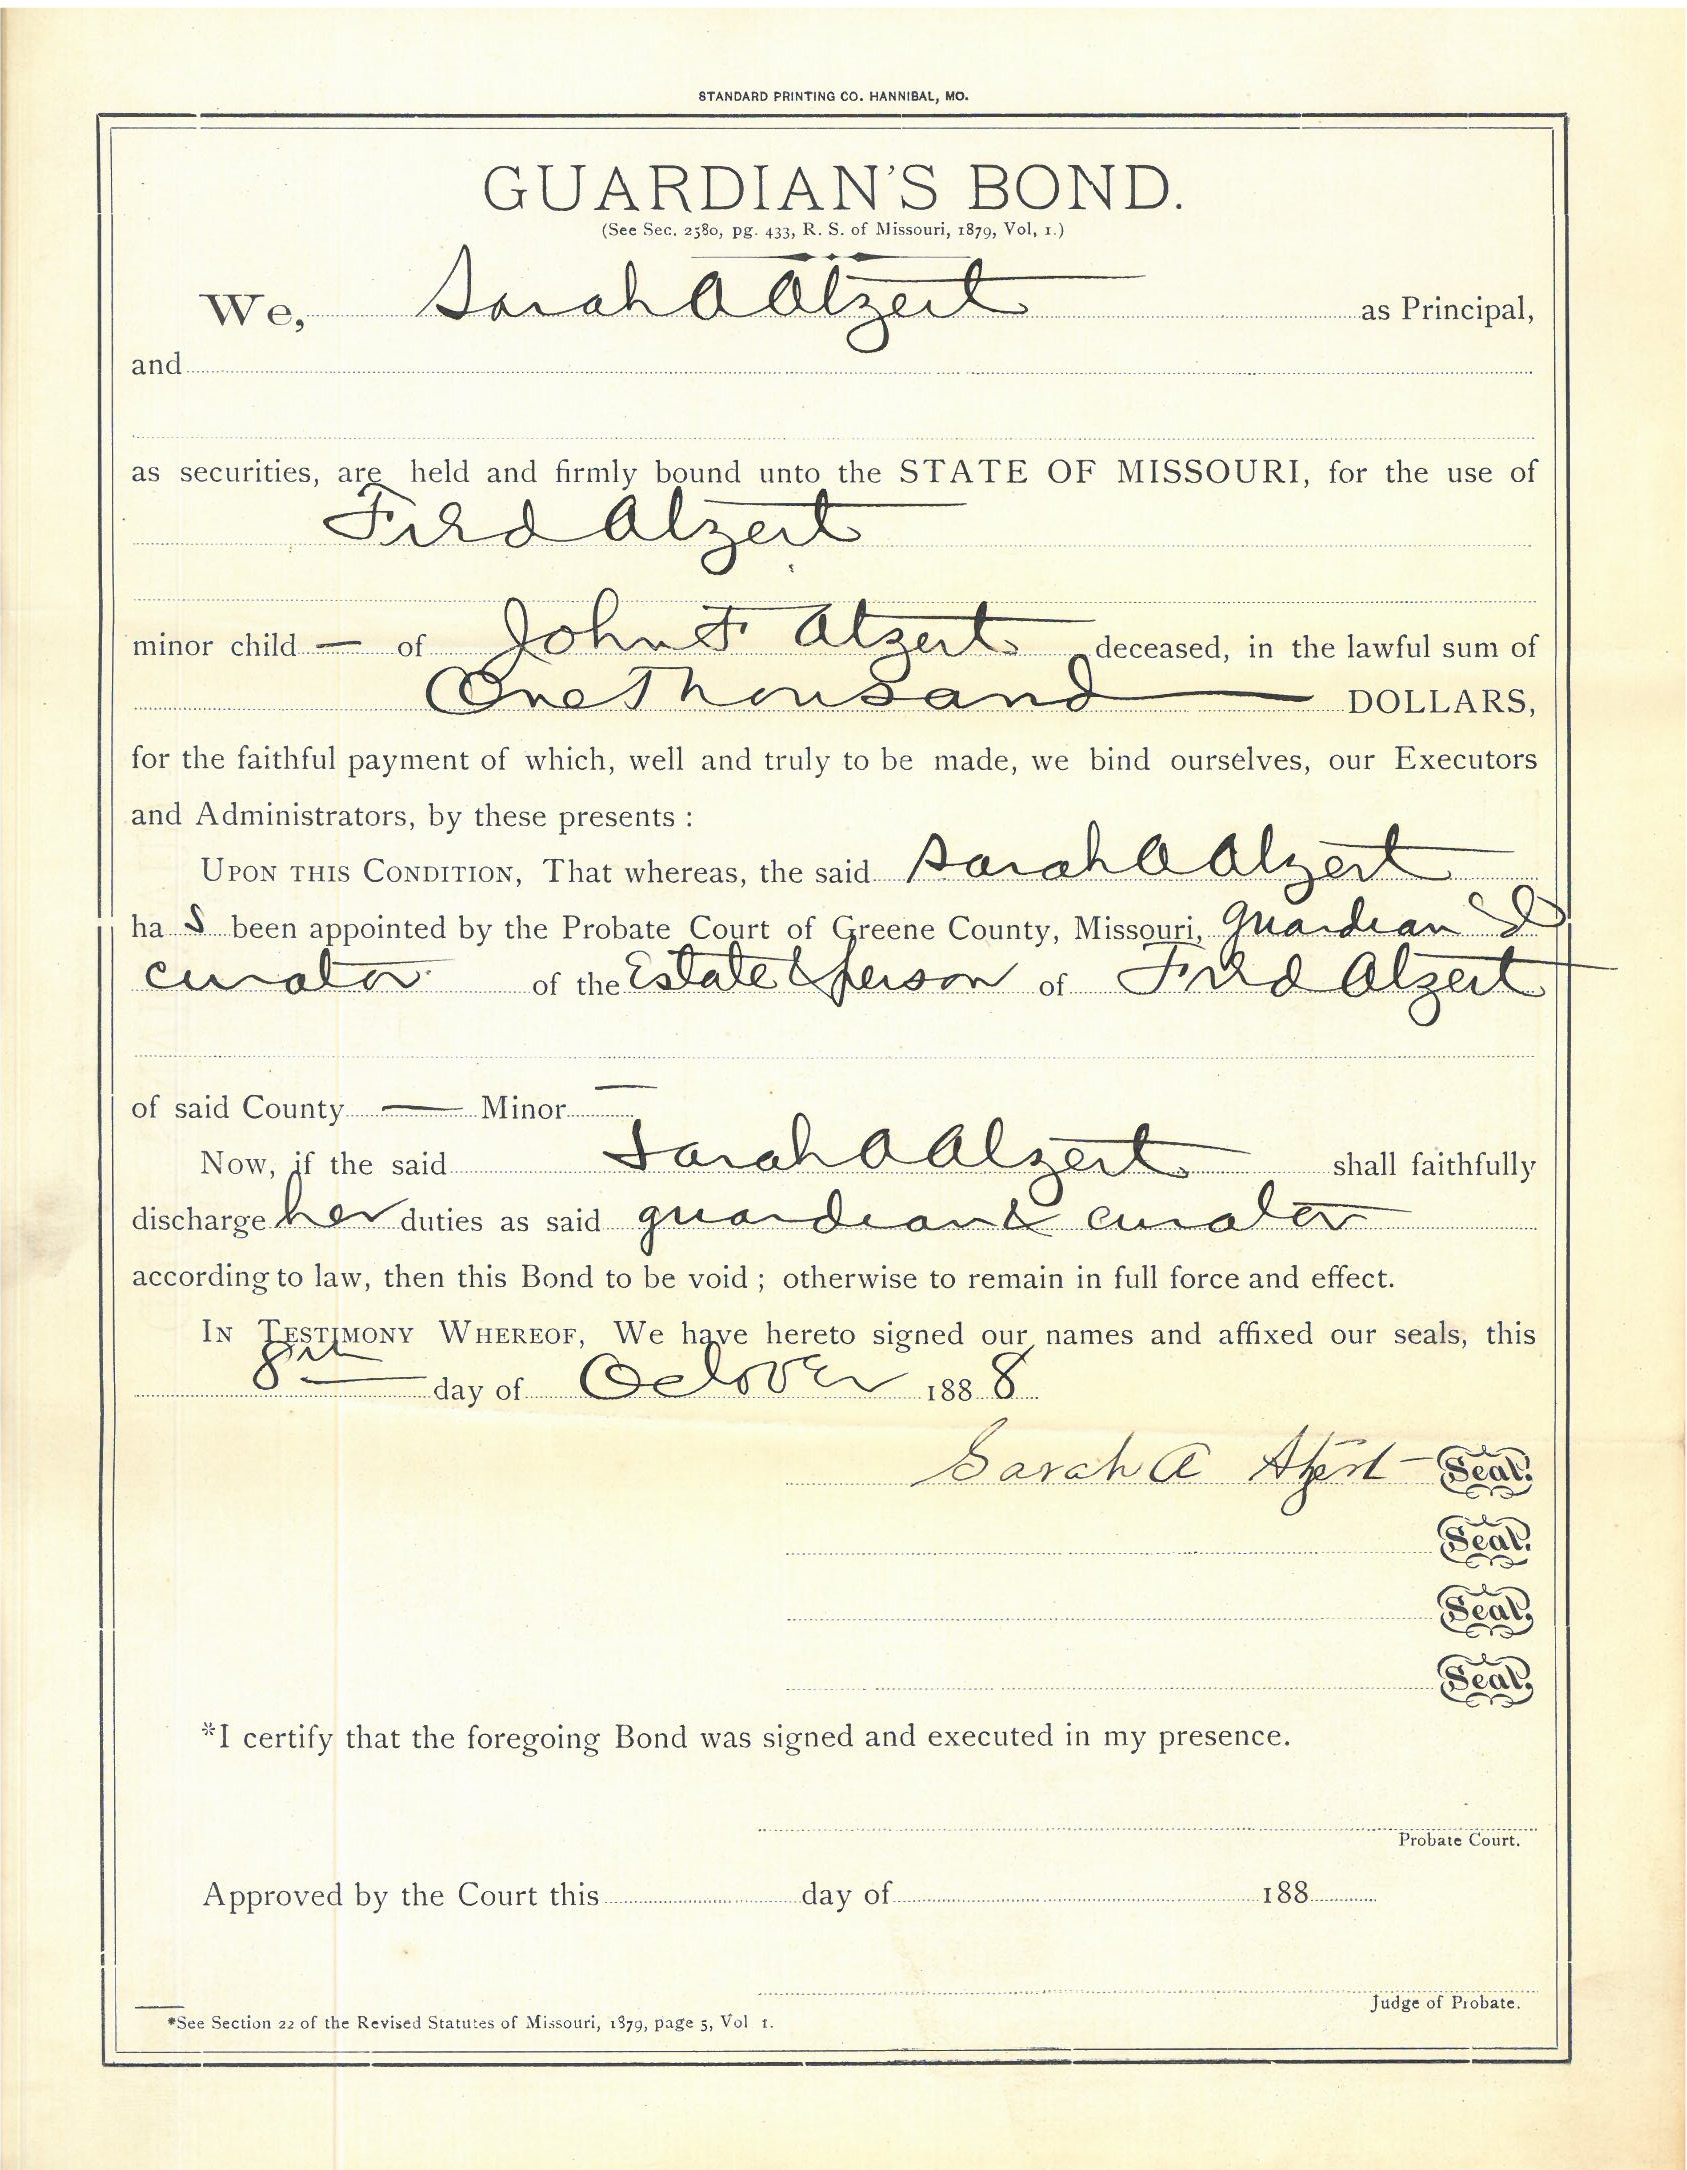 STANDARD PRINTING CO. HANNIBAL, MO.
GUARDIAN'S BOND.
(See Sec. 2580, pg. 433, R. S. of Missouri, 1879, Vol, 1.)
We, Sarah A Atzert as Principal,
and
as securities, are held and firmly bound unto the STATE OF MISSOURI, for the use of
Fred Atzert
minor child — of John F Atzert deceased, in the lawful sum of
One Thousand — DOLLARS,
for the faithful payment of which, well and truly to be made, we bind ourselves, our Executors
and Administrators, by these presents :
UPON THIS CONDITION, That whereas, the said Sarah A Atzert
has been appointed by the Probate Court of Greene County, Missouri, guardian &
curator of the Estate & person of Fred Atzert
of said County — Minor —
Now, if the said Sarah A Atzert shall faithfully
discharge her duties as said guardian & curator
according to law, then this Bond to be void ; otherwise to remain in full force and effect.
IN TESTIMONY WHEREOF, We have hereto signed our names and affixed our seals, this
8th day of October 1888
Sarah A Atzert Seal.
Seal.
Seal.
Seal.
*I certify that the foregoing Bond was signed and executed in my presence.
Probate Court.
Approved by the Court this day of 188
Judge of Probate.
*See Section 22 of the Revised Statutes of Missouri, 1879, page 5, Vol 1.